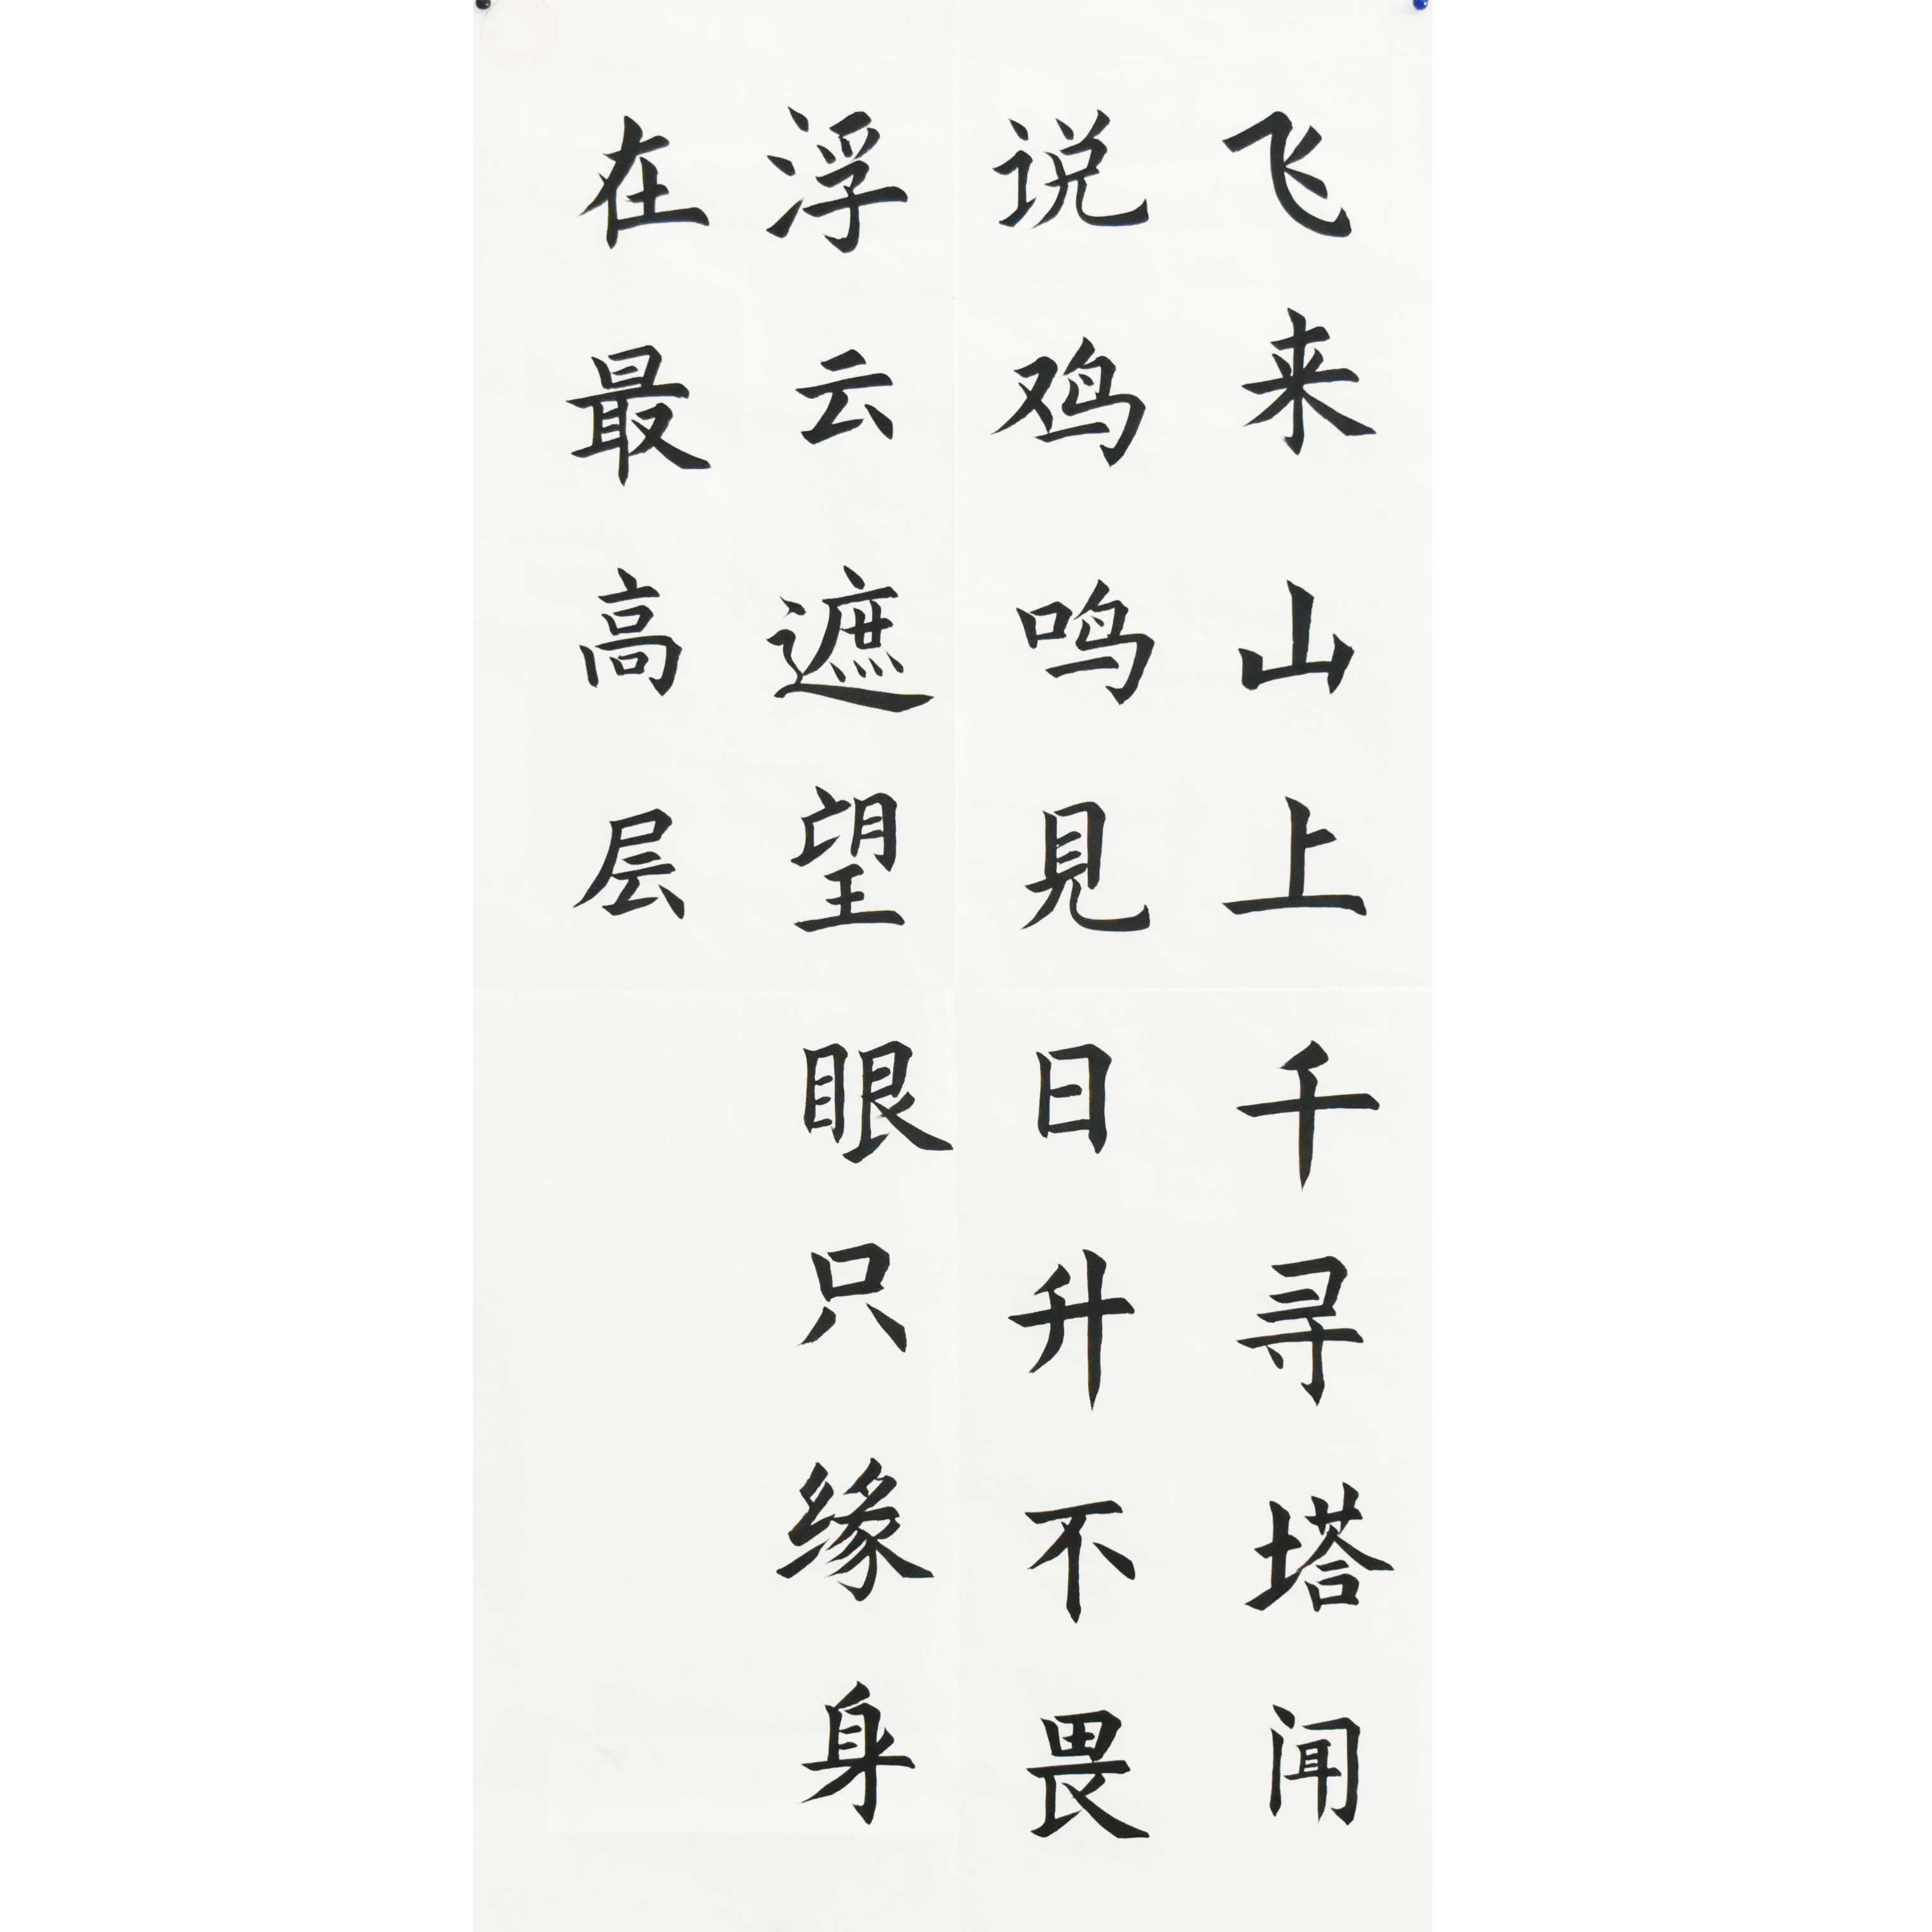 飞来山上千寻塔闻
说鸡鸣見日升不畏
浮云遮望眼只缘身
在最高层